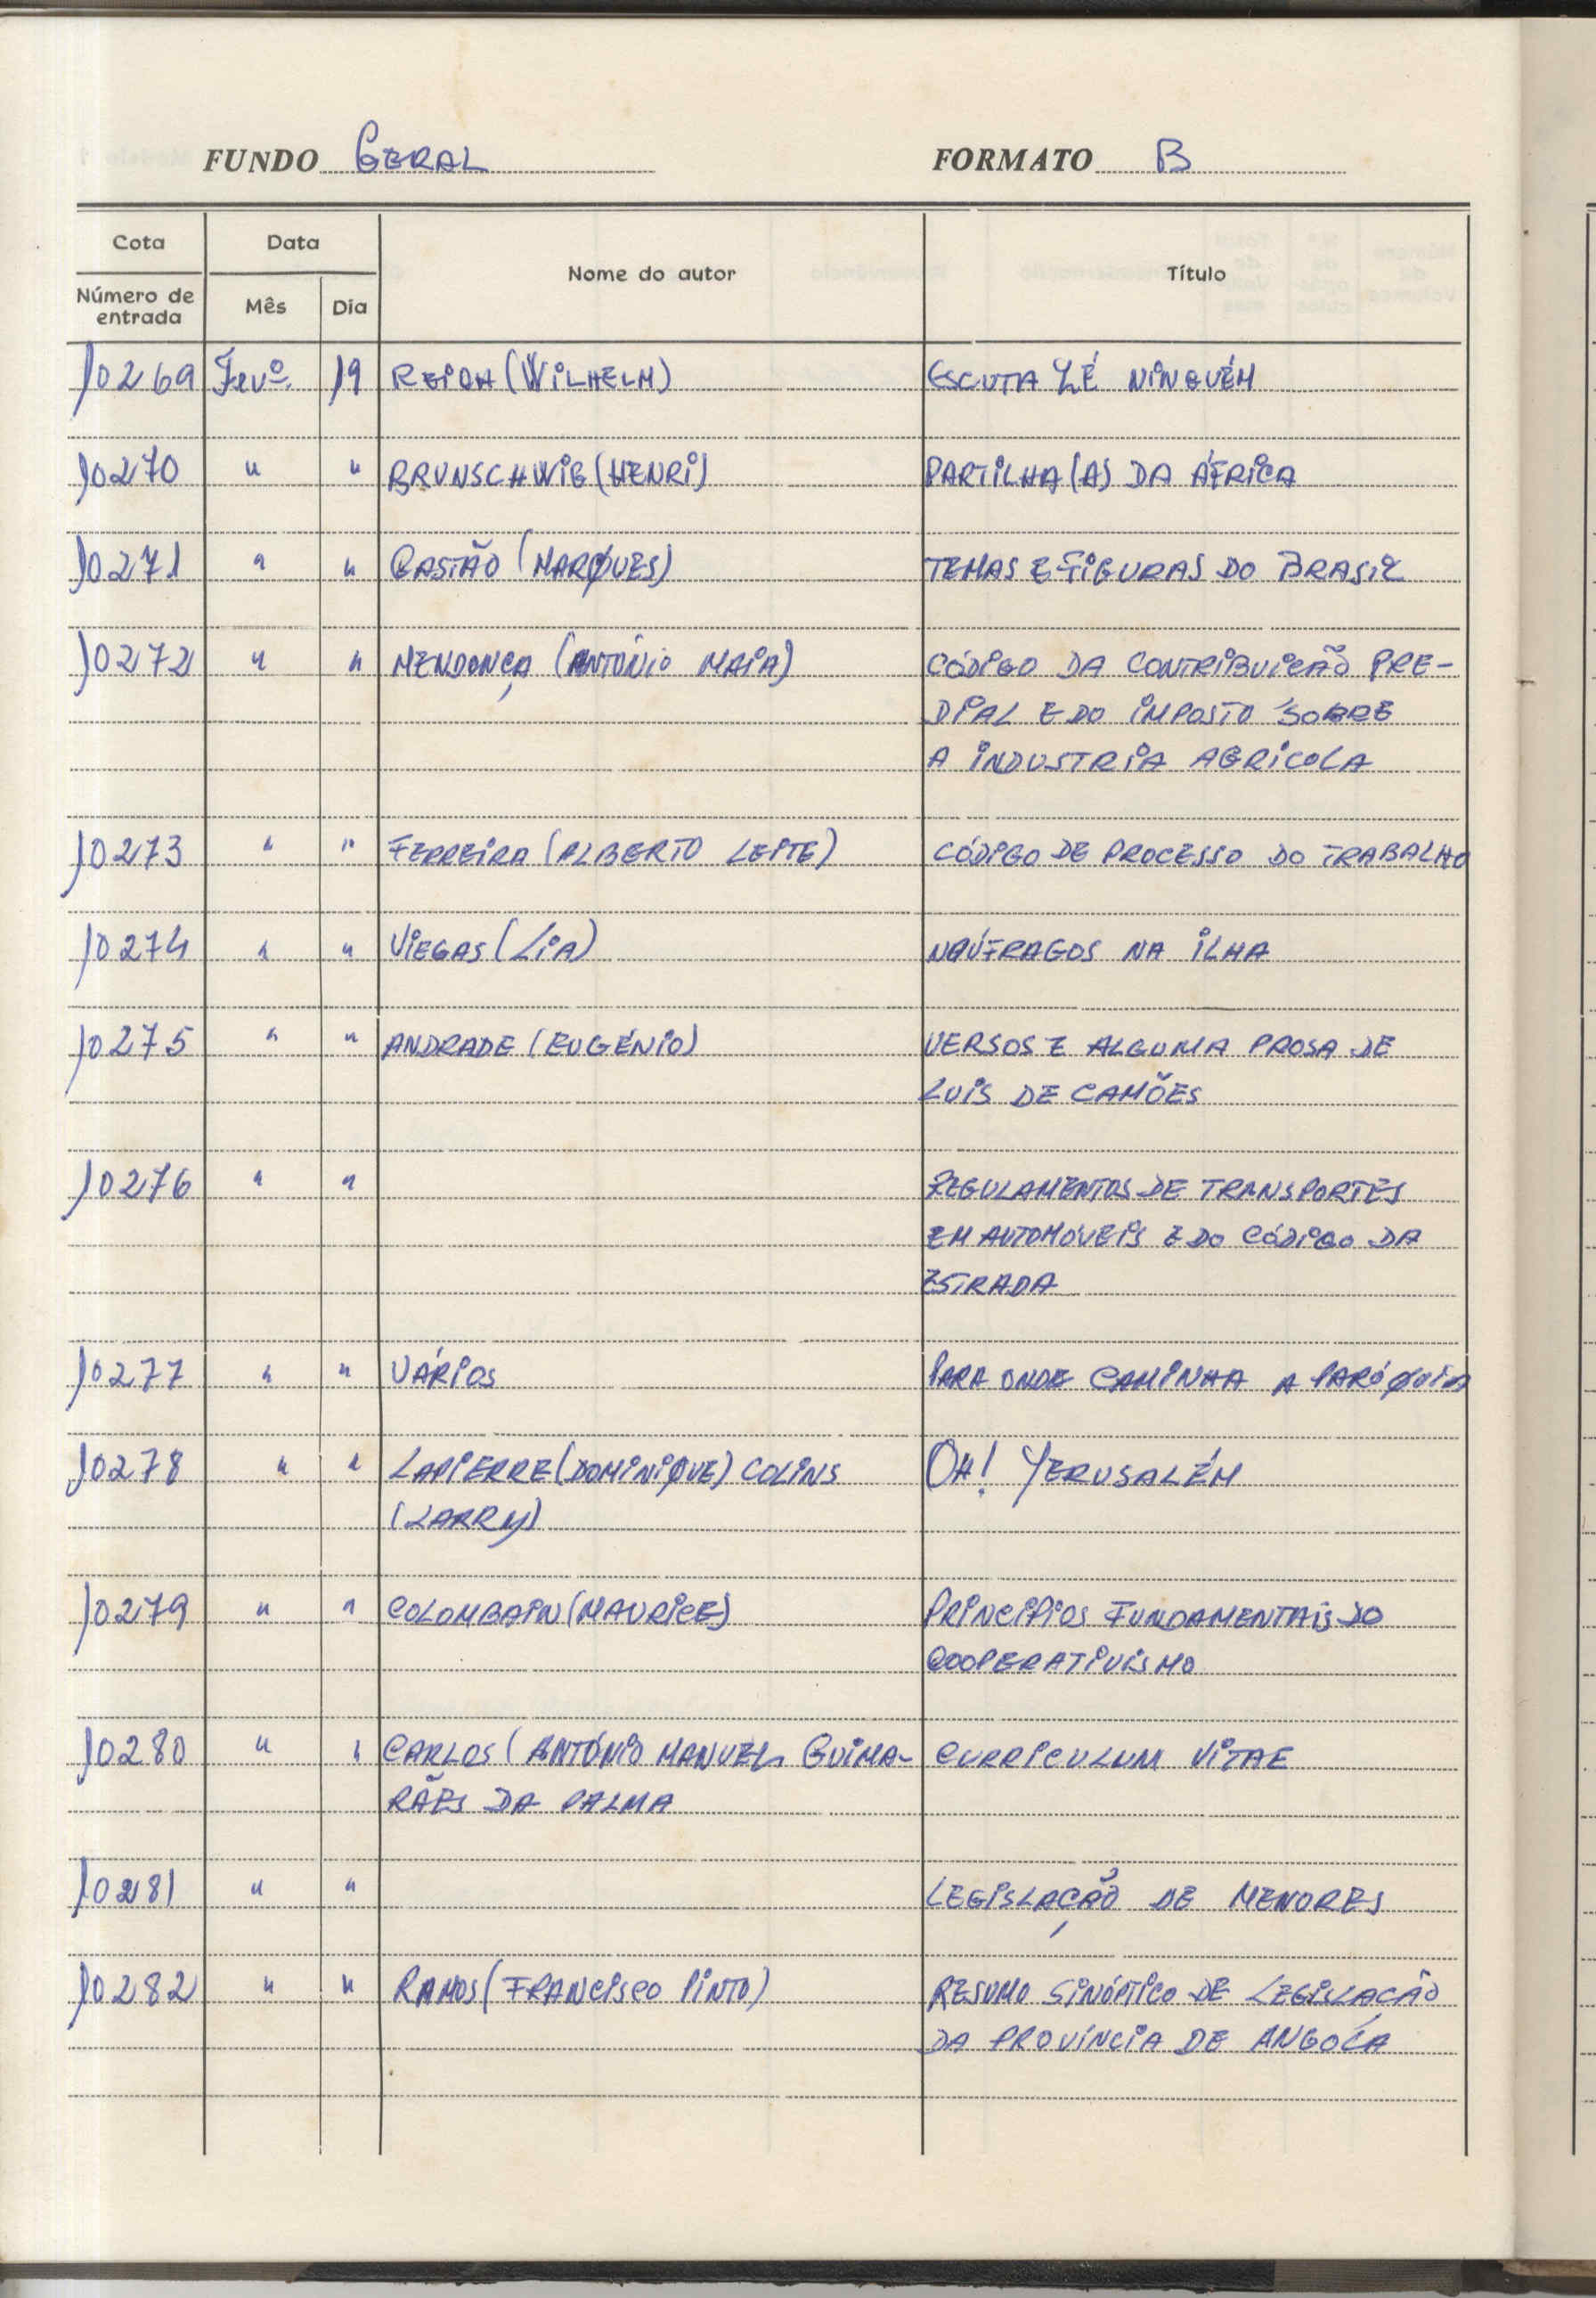 FUNDO GERAL FORMATO B
Cota Data Nome do autor Título
Número de entrada Mês Dia
10269 Fevº 19 REICH (WILHELM) ESCUTA ZÉ NINGUÉM
10270 " " BRUNSCHWIG (HENRI) PARTILHA (A) DA ÁFRICA
10271 " " GASTÃO (MARQUES) TEMAS E FIGURAS DO BRASIL
10272 " " MENDONÇA (ANTÓNIO MAIA) CÓDIGO DA CONTRIBUIÇÃO PRE-
DIAL E DO IMPOSTO SOBRE
A INDUSTRIA AGRICOLA
10273 " " FERREIRA (ALBERTO LEITE) CÓDIGO DE PROCESSO DO TRABALHO
10274 " " VIEGAS (LIA) NAÚFRAGOS NA ILHA
10275 " " ANDRADE (EUGÉNIO) VERSOS E ALGUMA PROSA DE
LUIS DE CAMÕES
10276 " " REGULAMENTOS DE TRANSPORTES
EM AUTOMÓVEIS E DO CÓDIGO DA
ESTRADA
10277 " " VÁRIOS PARA ONDE CAMINHA A PARÓQUIA
10278 " " LAPIERRE (DOMINIQUE) COLINS OH! YERUSALÉM
(LARRY)
10279 " " COLOMBAIN (MAURICE) PRINCIPIOS FUNDAMENTAIS DO
COOPERATIVISMO
10280 " " CARLOS (ANTÓNIO MANUEL GUIMA- CURRICULUM VITAE
RÃES DA PALMA
10281 " " LEGISLAÇÃO DE MENORES
10282 " " RAMOS (FRANCISCO PINTO) RESUMO SINÓPTICO DE LEGISLAÇÃO
DA PROVÍNCIA DE ANGOLA